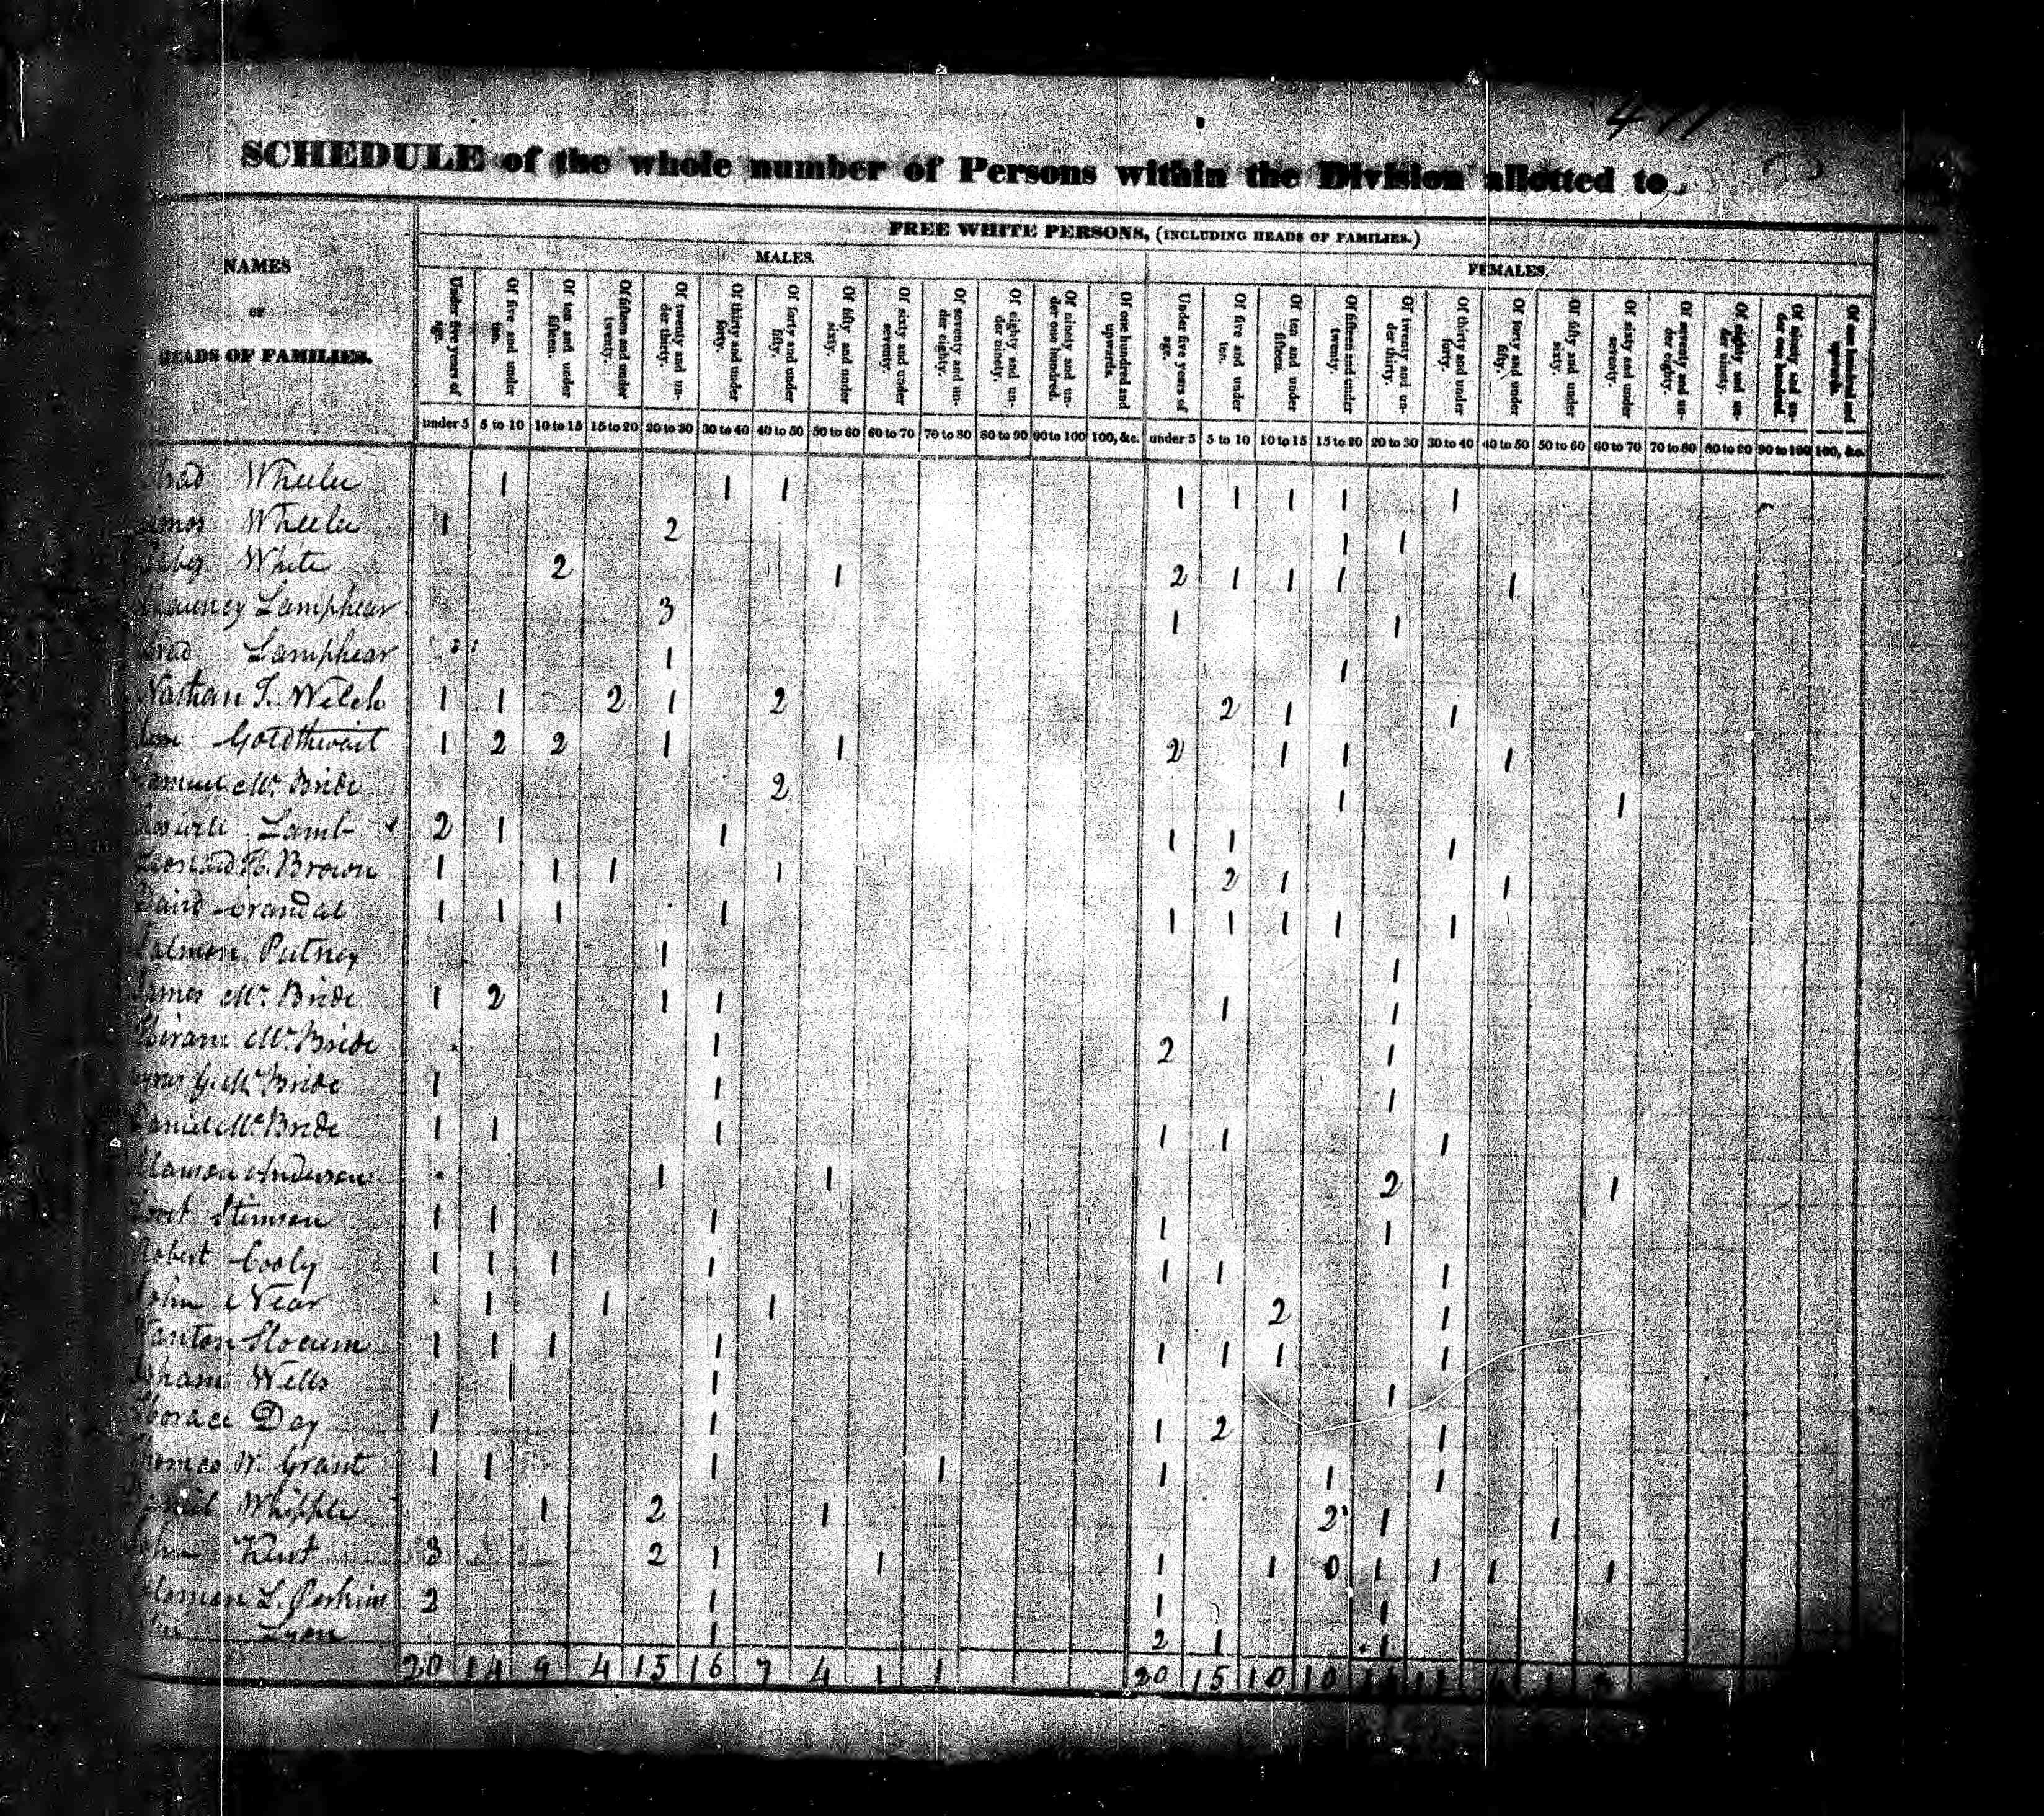 SCHEDULE of the whole number of Persons within the Division allotted to
FREE WHITE PERSONS, (INCLUDING HEADS OF FAMILIES.)
NAMES
OF
HEADS OF FAMILIES.
MALES.
FEMALES.
Under five years of age.
Of five and under ten.
Of ten and under fifteen.
Of fifteen and under twenty.
Of twenty and under thirty.
Of thirty and under forty.
Of forty and under fifty.
Of fifty and under sixty.
Of sixty and under seventy.
Of seventy and under eighty.
Of eighty and under ninety.
Of ninety and under one hundred.
Of one hundred and upwards.
Under five years of age.
Of five and under ten.
Of ten and under fifteen.
Of fifteen and under twenty.
Of twenty and under thirty.
Of thirty and under forty.
Of forty and under fifty.
Of fifty and under sixty.
Of sixty and under seventy.
Of seventy and under eighty.
Of eighty and under ninety.
Of ninety and under one hundred.
Of one hundred and upwards.
under 5 5 to 10 10 to 15 15 to 20 20 to 30 30 to 40 40 to 50 50 to 60 60 to 70 70 to 80 80 to 90 90 to 100 100, &c. under 5 5 to 10 10 to 15 15 to 20 20 to 30 30 to 40 40 to 50 50 to 60 60 to 70 70 to 80 80 to 90 90 to 100 100, &c.
Wheeler 1 1 1 1 1 1 1 1
Wheeler 1 2 1 1
White 2 1 2 1 1 1 1
Lamphear 3 1 1
Lamphear 1 1
Nathan T. Welch 1 1 2 1 2 2 1 1
Goldthwait 1 2 2 1 1 2 1 1 1
Samuel Mc Bride 2 1 1
Lamb 2 1 1 1 1 1
Leonard H. Brown 1 1 1 1 2 1 1
David Crandal 1 1 1 1 1 1 1 1 1
Salmon Putney 1 1
James Mc Bride 1 2 1 1 1 1
Hiram Mc Bride 1 2 1
Cyrus G. Mc Bride 1 1 1
Daniel Mc Bride 1 1 1 1 1 1
Anderson 1 1 2 1
Stimson 1 1 1 1 1
Robert Cooly 1 1 1 1 1 1 1
John Near 1 1 1 2 1
Wanton Slocum 1 1 1 1 1 1 1 1
Wells 1 1
Horace Day 1 1 1 2 1
Thomas W. Grant 1 1 1 1 1 1 1
Whipple 1 2 1 2 1 1
John Kent 3 2 1 1 1 1 0 1 1 1 1
Solomon L. Perkins 2 1 1 1
Lyon 1 2 1 1
20 14 9 4 15 16 7 4 1 1 20 15 10 10